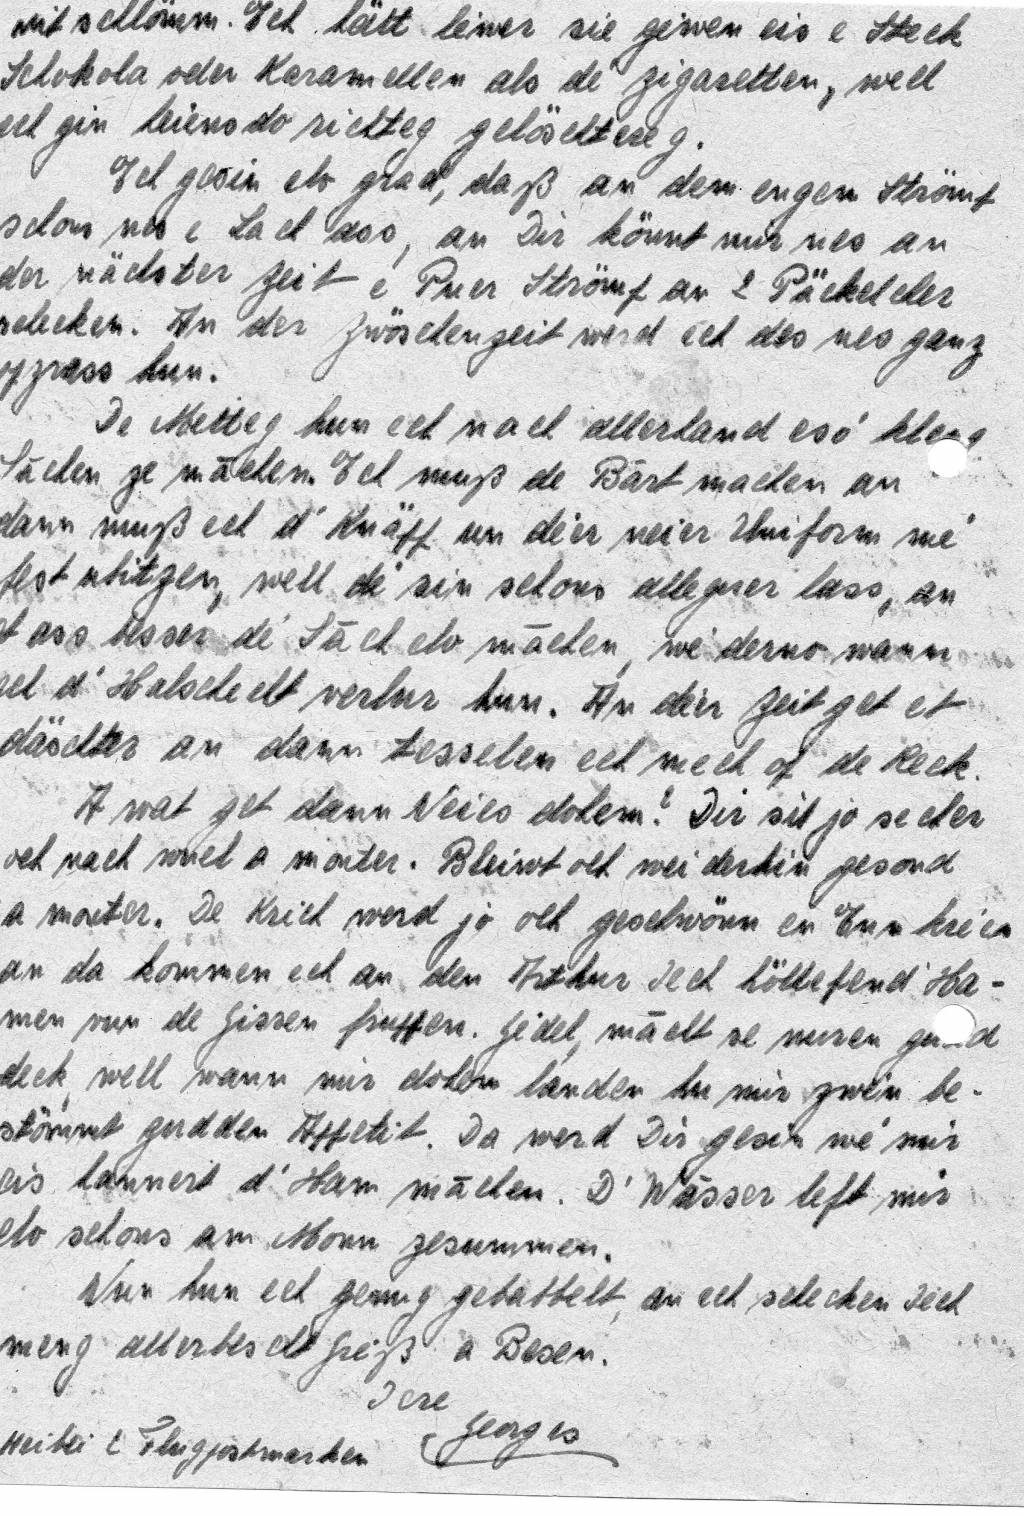 nit schlömm. Ech hätt léiwer sie géiwen eis e Steck
Schokola oder Karamellen als dé Zigaretten, well
ech gin heiensdo richteg gelöschtereg.
Ech gesin elo grad, daß an dem engen Strömp
schons nes e Lach ass, an Dir könnt mir nes an
der nächster Zeit e Puer Strömp an 2 Päckelcher
schecken. An der Zwöschenzeit werd ech des nes ganz
opgrass hun.
De Metteg hun ech nach allerhand esó kleng
Sāchen ze māchen. Ech muß de Bārt machen an
dann muß ech d' Knäpp un déier neier Uniform mé
fest nhitzen, well dé sin schons alleguer lass, an
t ass besser dé Sāch elo māchen, wé derno wann
ech d' Halschecht verlur hun. An déier Zeit get et
däischter an dann tesselen ech mech of de Reck.
A wat get dann Neies dohem? Dir sit jo secher
och nach wuel a monter. Bleiwt och weiderhin gesond
a monter. De Krich werd jo och geschwönn en Enn kréien
an da kommen ech an den Arthur Iech höllefen d' Ha-
men vun de Gissen fruppen. Gidel, mācht se nuren gudd
deck, well wann mir dohem landen hu mir zwéin be-
stömmt gudden Appetit. Da werd Dir gesin wé mir
eis hannert d' Ham māchen. D' Wāsser left mir
elo schons am Monn zesummen.
Nun hun ech genug gebabbelt, an ech schecken Iech
meng allerbescht Gréiß a Besen.
Iere
Georges
Heibei 2 Flugpostmarken